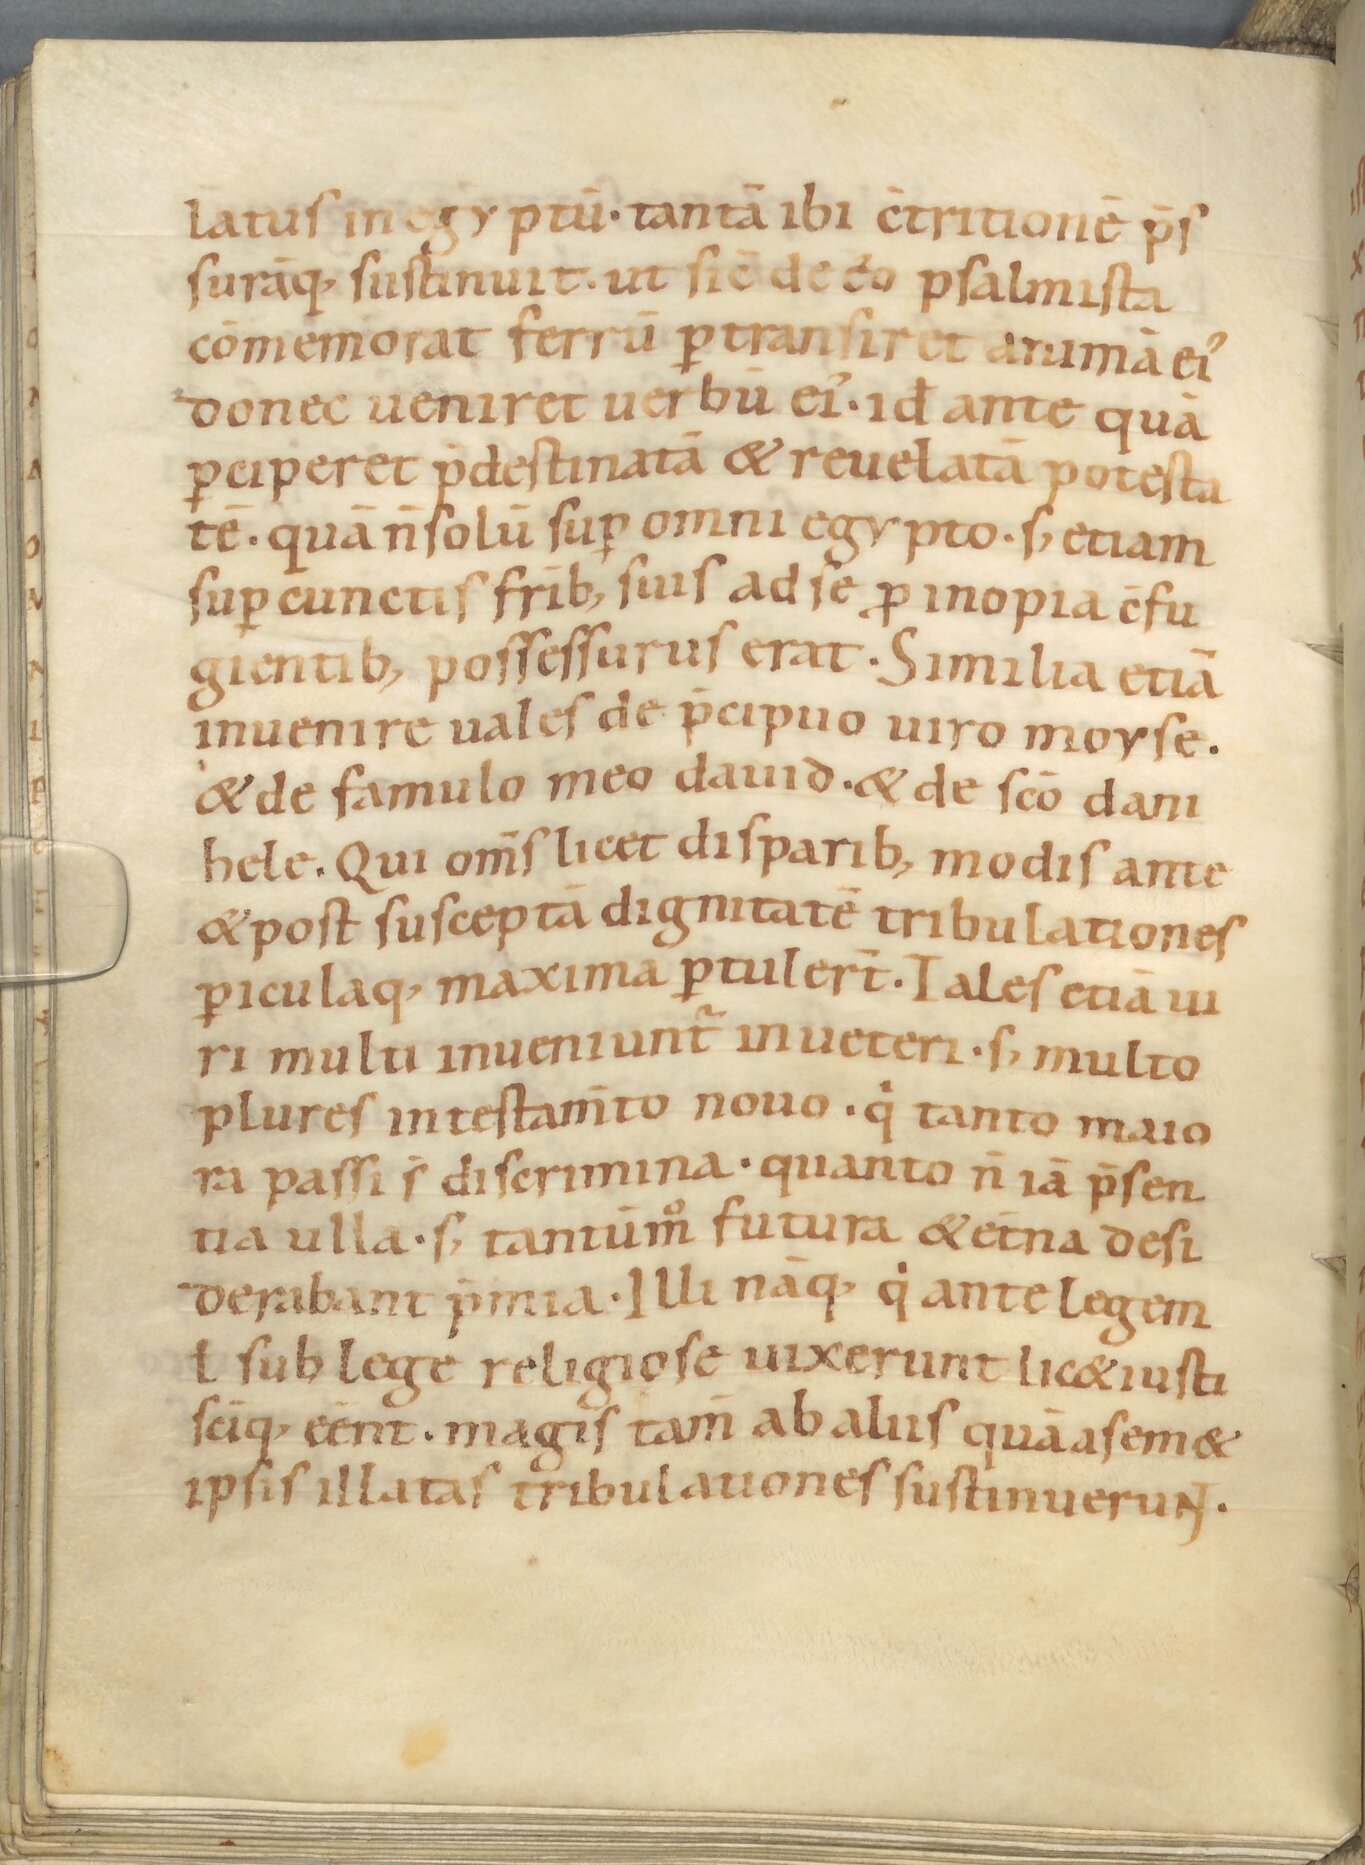 latus in egyptū· tantā ibi c̄tritionē p̄s
surāq; sustinuit· ut sič de eo psalmista
cōmemorat ferrū ꝑtransiret animā eiꝰ
donec ueniret uerbū eiꝰ· id̄ ante quā
ꝑciperet p̄destinatā & reuelatā potesta
tē· quā n̄ solū suꝑ omni egypto· s; etiam
suꝑ cunctis frīb; suis ad se ꝓ inopia c̄fu
gientib; possessurus erat· Similia etiā
inuenire uales de p̄cipuo uiro moyse·
& de famulo meo dauid· & de sc̄o dani
hele· Qui om̄s licet disparib; modis ante
& post susceptā dignitatē tribulationes
ꝑiculaq; maxima ꝑtuler̄t· Tales etiā ui
ri multi inueniunt᷑ in ueteri· s; multo
plures in testam̄to nouo· qi tanto maio
ra passi s̄ discrimina· quanto n̄ iā p̄sen
tia ulla· s; tantūm̊ futura & et̄na desi
derabant p̄mia· Illi nāq; qi ante legem
ł sub lege religiose uixerunt lic& iusti
sc̄iq; eēnt· magis tam̄ ab aliis quā a sem&
ipsis illatas tribulationes sustinuerunt·